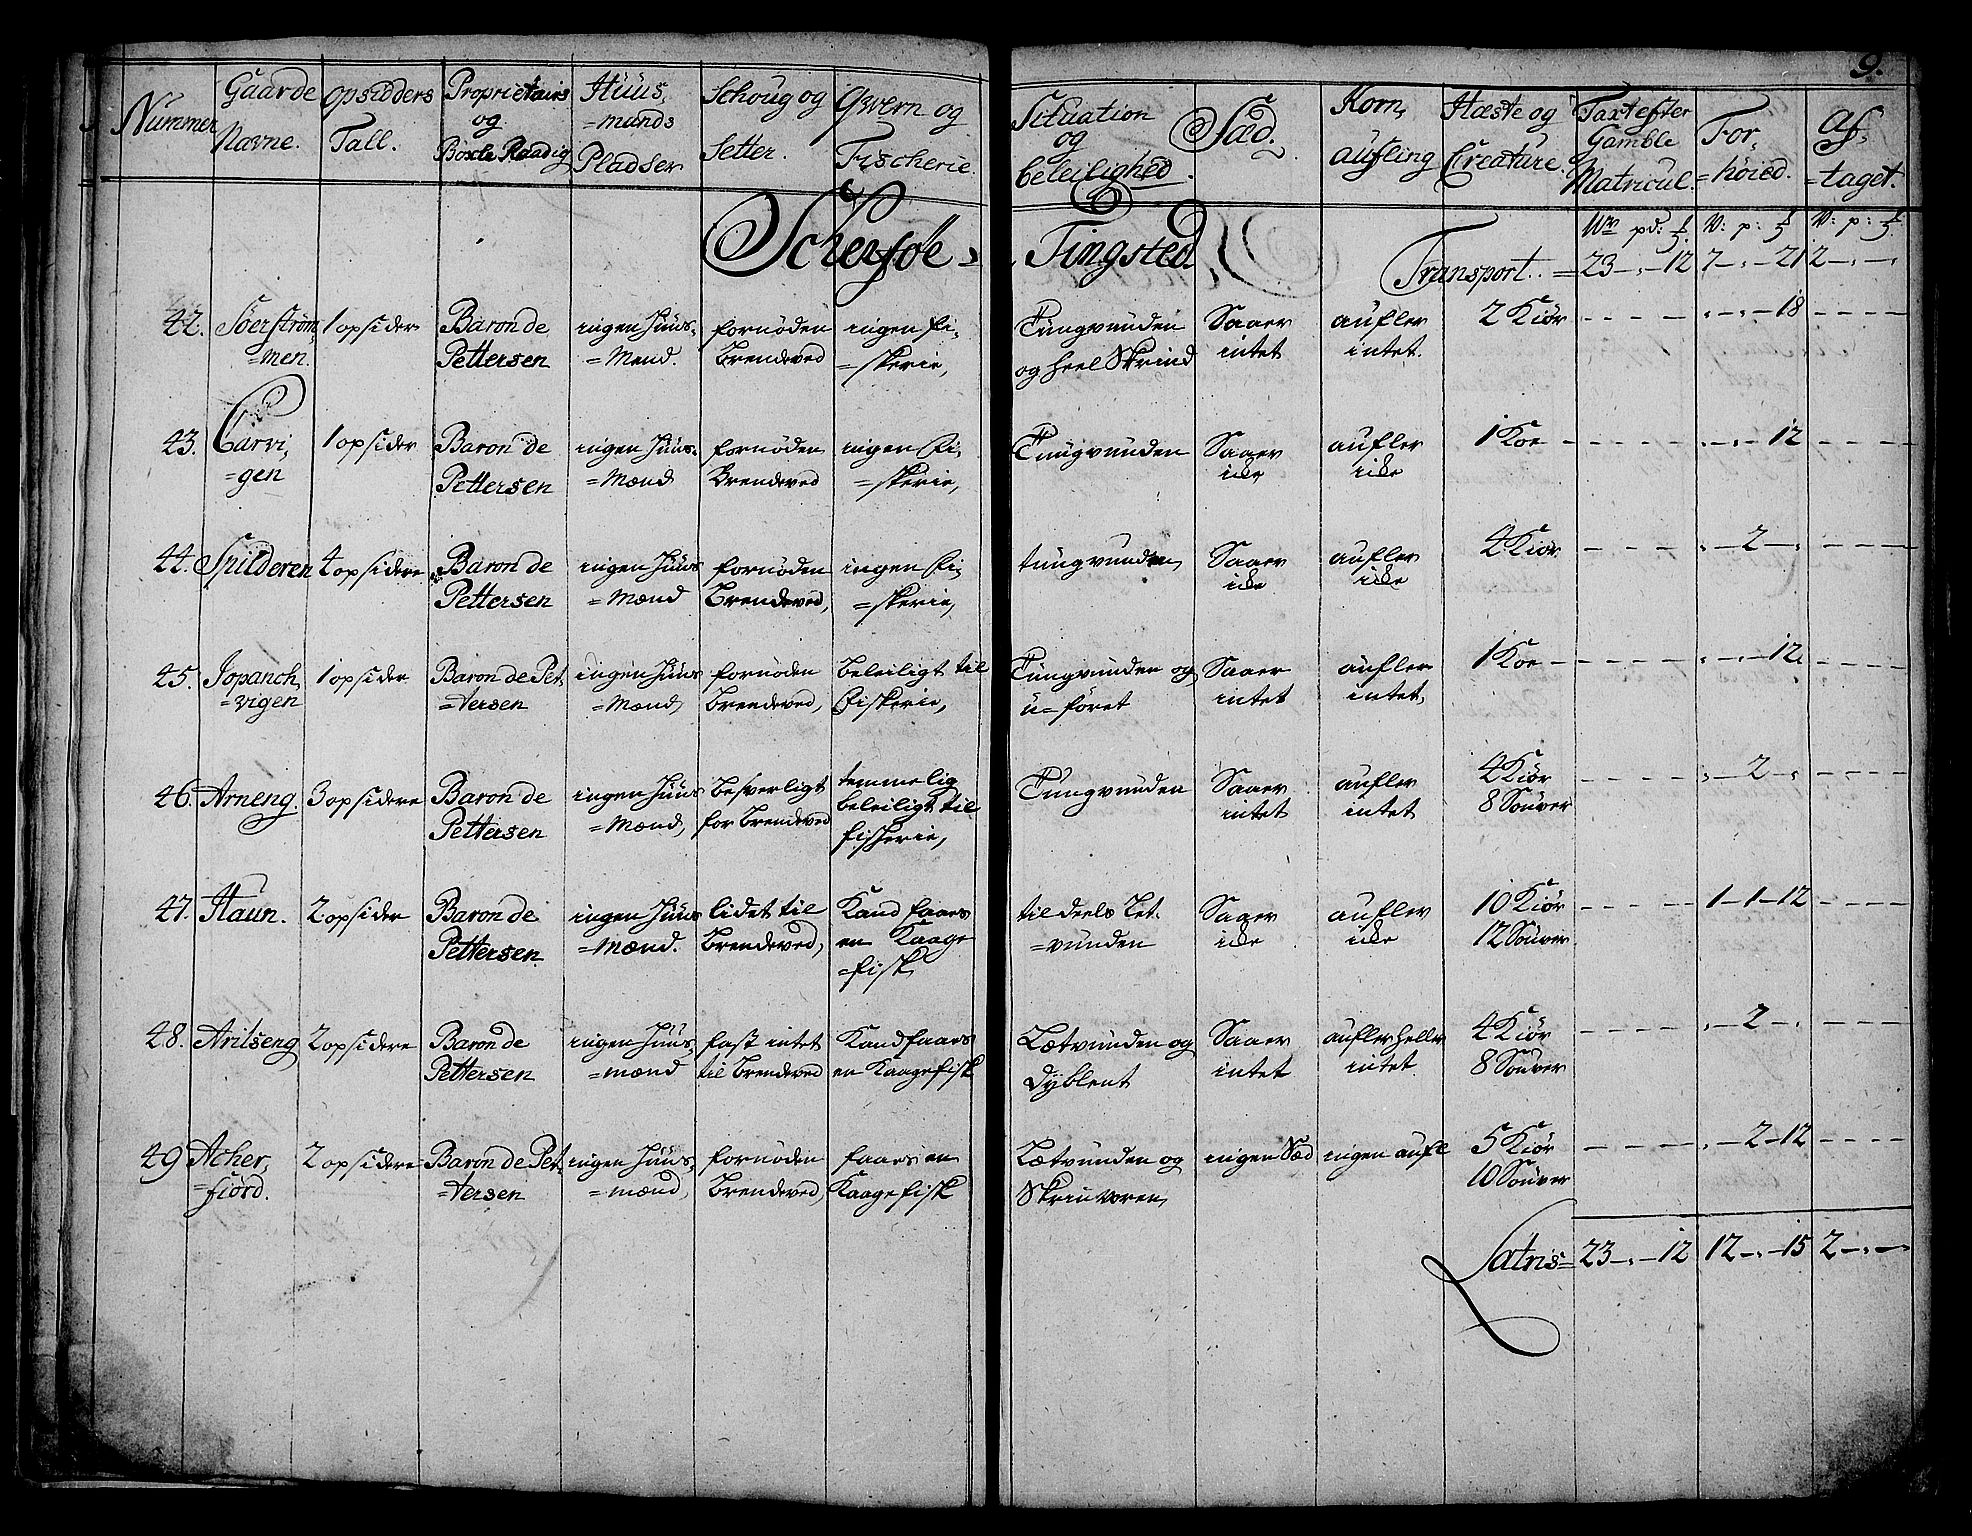 9.
Nummer | Gaarde Navne. | Opsidders Tall. | Proprietairs og Böxle Raadig | Huus=mands Pladser | Schoug og Setter. | Qvern og Fischerie. | Situation og beleilighed. | Sæd. | Korn aufling | Hæste og Creature. | Taxt efter Gamble Matricul. | For=höied. | Af=taget.
Scherföe Tingsted
W: pd: | V: p: | V: p:
Transport. = 23 - " - 12 | 7 - " - 21 | 2 - " -
42. | Söerström=men. | 1 opsider | Baron de Pettersen | ingen Huus=Mend. | fornöden Brendeved | ingen fi=skerie, | Tungvunden og heel Skrind | Saaer intet | aufler intet. | 2 Kiör | - - - - | " - " - 18 | - - - -
43. | Carvi=gen | 1 opsider | Baron de Pettersen | ingen Huus=Mænd | fornöden Brendeved | ingen Fi=skerie, | Tungvunden | Saaer icke | aufler icke | 1 Koe | - - - - | " - " - 12 | - - - -
44. | Spilderen | 4 opsidere | Baron de Pettersen | ingen Huus=Mænd | fornöden Brendeved, | ingen Fi=skerie, | tungvunden | Saaer icke | aufler icke | 4 Kiör | - - - - | " - 2 - " | - - - -
45. | Jopanch=vigen | 1 opsider | Baron de Pet=tersen | ingen Huus=Mænd | fornöden Brendeved, | beleiligt til Fiskerie, | Tungvunden og u=föret | Saaer intet | aufler intet, | 1 Koe | - - - - | " - " - 12. | - - - -
46. | Arneng. | 3 opsidere | Baron de Pettersen | ingen Huus=Mænd, | besverligt for Brendeved | temmelig beleiligt til fiskerie, | Tungvunden | Saaer intet | aufler intet | 4 Kiör 8 Souver | - - - - | " - 2 - " | - - - -
47. | Haun. | 2 opsider | Baron de Pettersen. | ingen Huus=Mænd. | lidet til Brendeved, | Kand faaes en Kaage=fisk | til deels Let=vunden | Saaer icke | aufler icke | 10 Kiör 12 Souver. | - - - - | 1 - 1 - 12 | - - - -
48. | Arilseng | 2 opsidere | Baron de Pettersen | ingen Huus=mænd | fast intet til Brendeved | Kand faaes en Kaagefisk | Lætvunden og Dyblent | Saaer intet | aufler heller intet. | 4 Kiör 8 Souver | - - - - | " - 2 - " | - - - -
49 | Acher=fiord. | 2 opsidere | Baron de Pet=tersen | ingen Huus=mænd, | fornöden Brendeved, | faaes en Kaagefisk | Lætvunden og Skrinvoren, | ingen Sæd | ingen aufl | 5 Kiör 10 Souver | - - - - | " - 2 - 12 | - - - -
Latris = 23 - " - 12 | 12 - " - 15 | 2 - " -